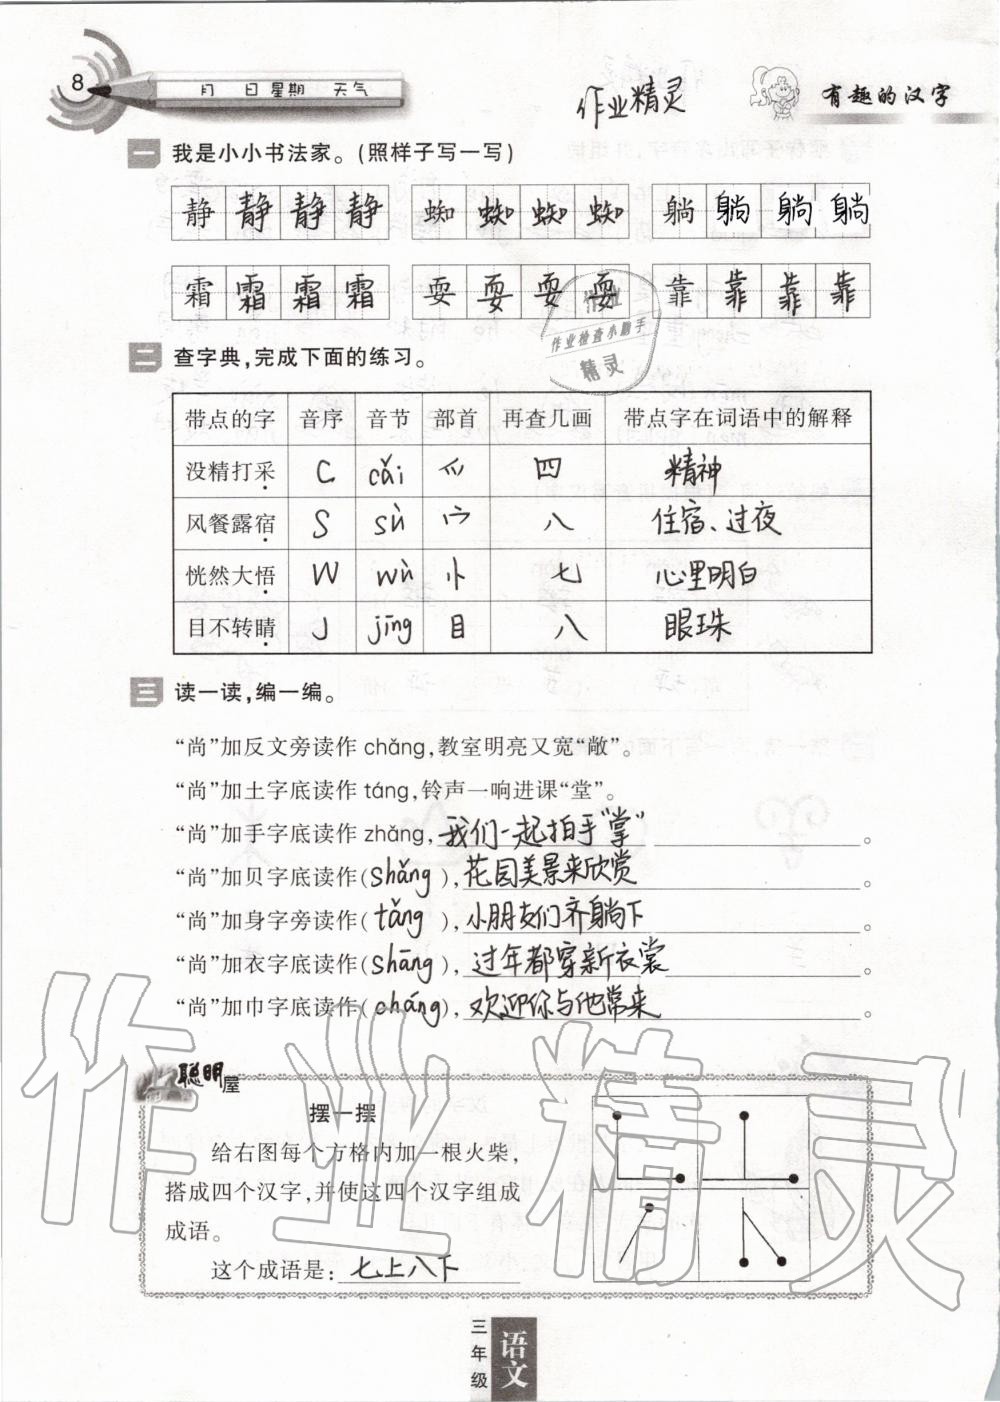 8
月 日 星期 天气
作业精灵
有趣的汉字
一 我是小小书法家。(照样子写一写)
静 静 静 静 蜘 蜘 蜘 蜘 躺 躺 躺 躺
霜 霜 霜 霜 耍 耍 耍 耍 靠 靠 靠 靠
作业
作业检查小助手
精灵
二 查字典,完成下面的练习。
带点的字 音序 音节 部首 再查几画 带点字在词语中的解释
没精打采 C cǎi 爫 四 精神
风餐露宿 S sù 宀 八 住宿、过夜
恍然大悟 W wù 忄 七 心里明白
目不转睛 J jīng 目 八 眼珠
三 读一读,编一编。
“尚”加反文旁读作 chǎng,教室明亮又宽“敞”。
“尚”加土字底读作 táng,铃声一响进课“堂”。
“尚”加手字底读作 zhǎng,我们一起拍手“掌”。
“尚”加贝字底读作(shǎng),花园美景来欣赏。
“尚”加身字旁读作(tǎng),小朋友们齐躺下。
“尚”加衣字底读作(shāng),过年都穿新衣裳。
“尚”加巾字底读作(cháng),欢迎你与他常来。
作业精灵
聪明屋
摆一摆
给右图每个方格内加一根火柴,
搭成四个汉字,并使这四个汉字组成
成语。
这个成语是:七上八下
三年级
语文